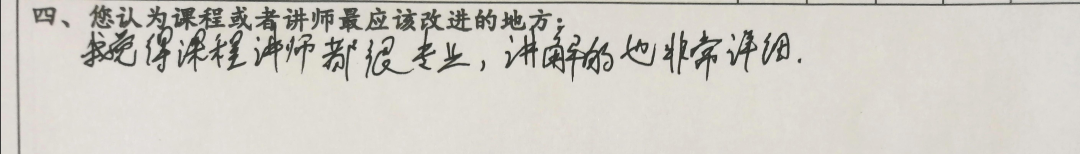 四、您认为课程或者讲师最应该改进的地方：
我觉得课程讲师都很专业，讲解的也非常详细.